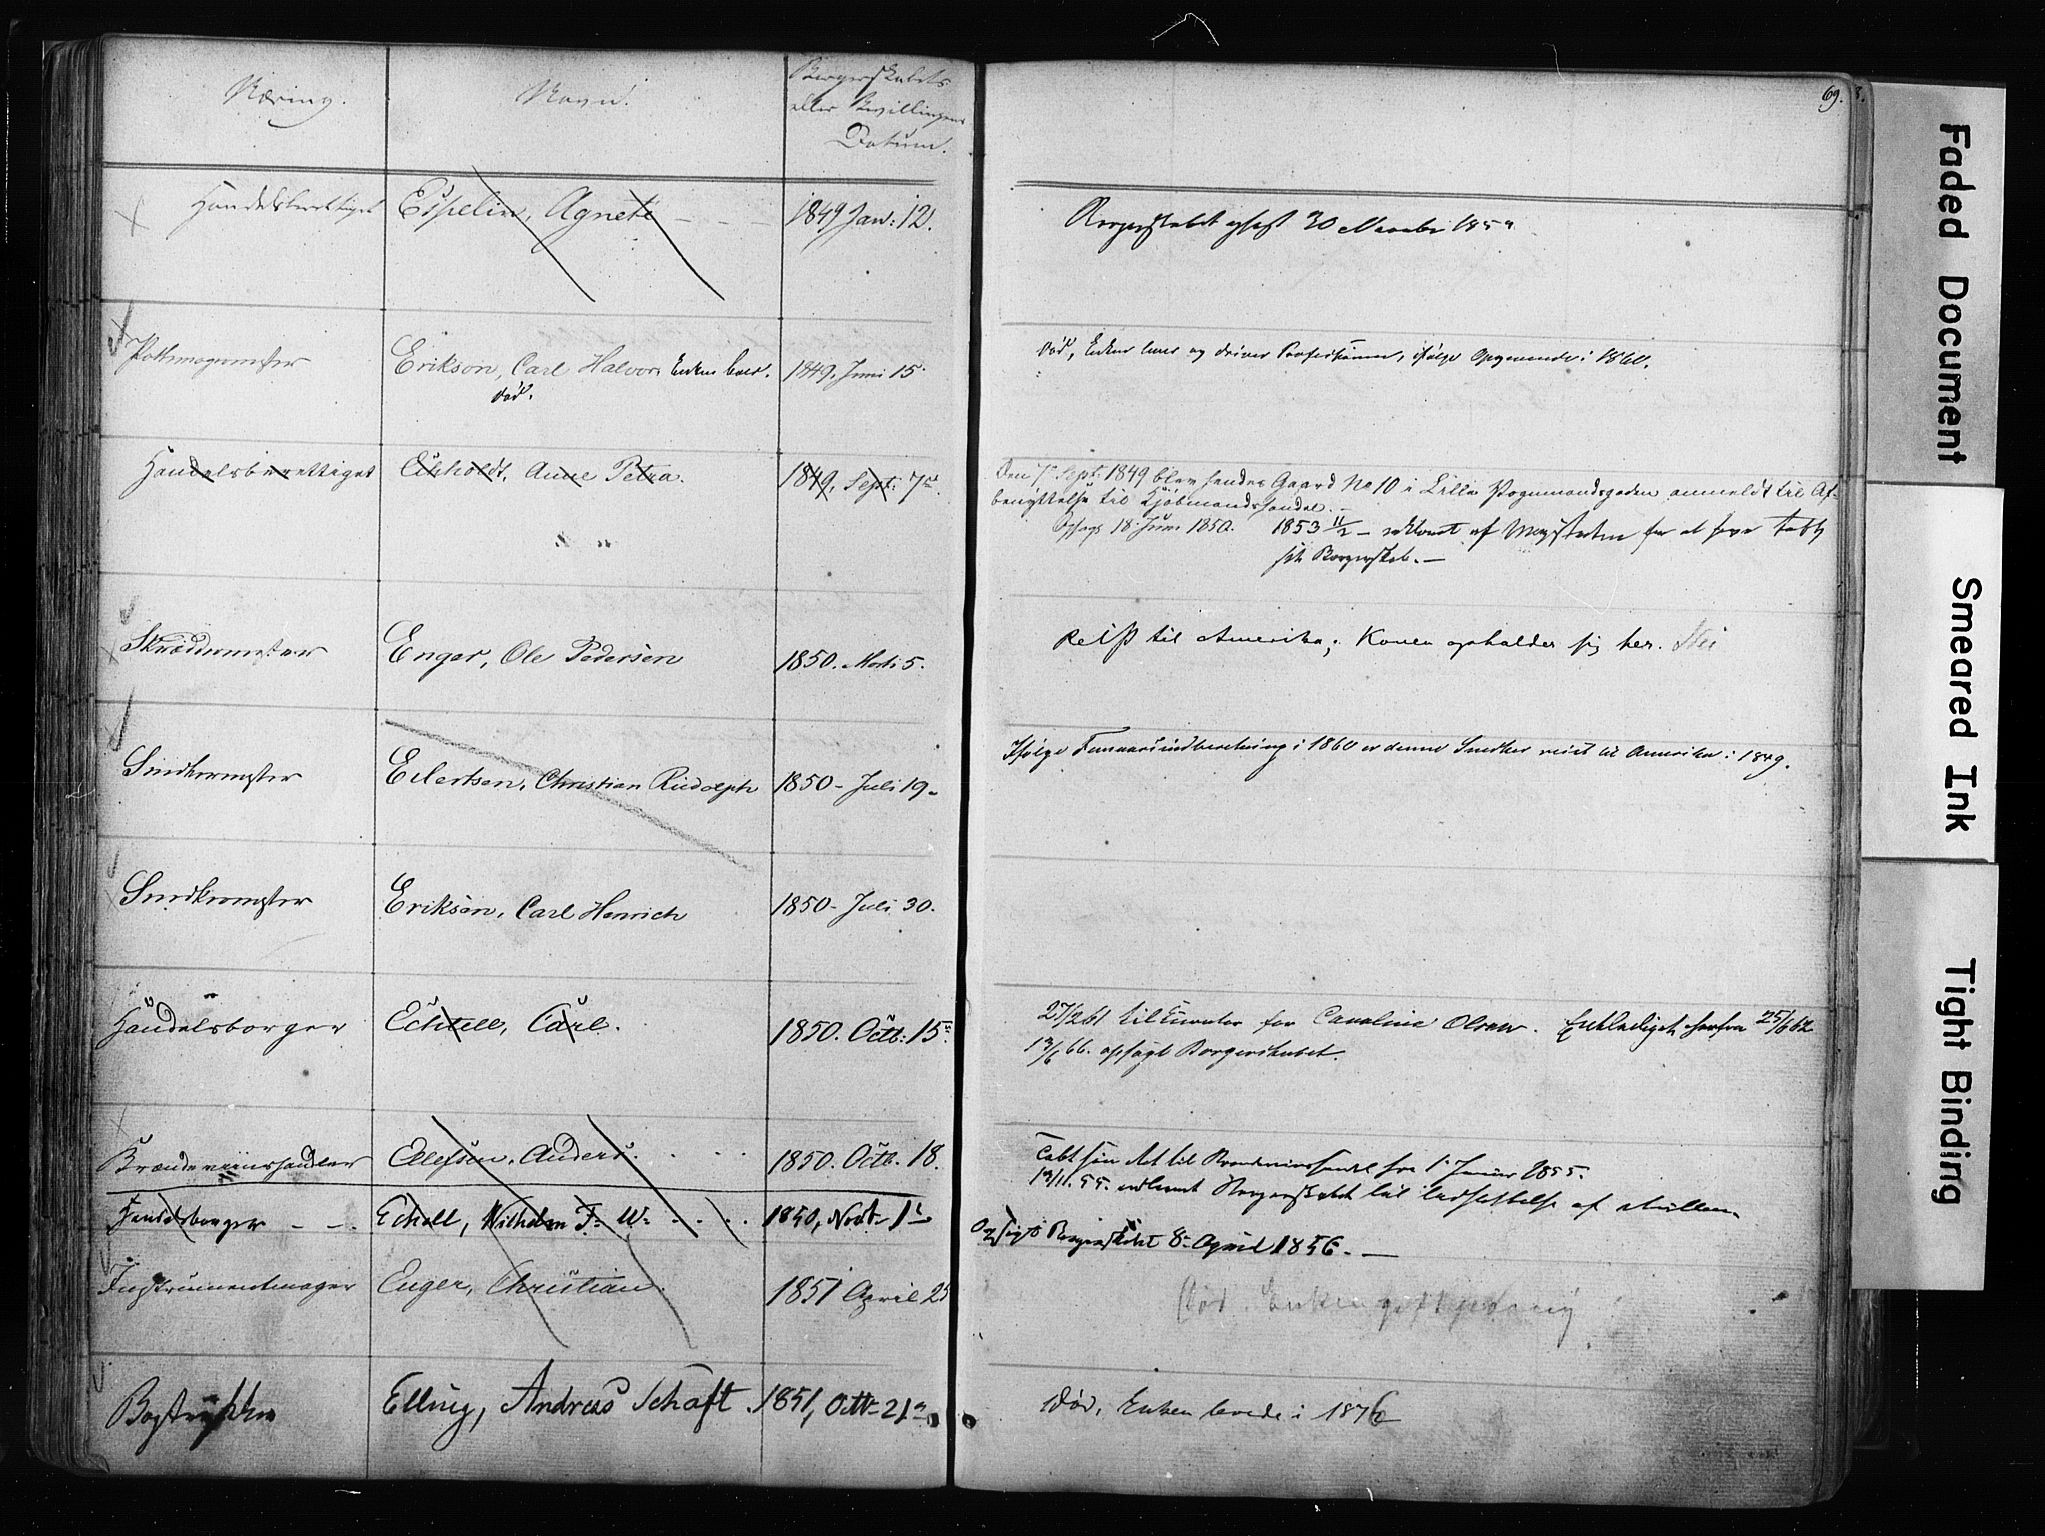 Næring.
Navn.
Borgerskabets
eller Bevillingens
Datum.
69.
Handelsberettiget Espelin, Agnete - - - 1849 Jan: 12. Borgerskabet opsagt 30
Pottemagermester Erikson, Carl Halvor. Enken lever. 1849, Juni 15. Død, Enken lever og driver Professionen, ifølge Opgivende i 1860.
død.
Handelsberettiget Eckholdt, Anne Petra. 1849, Sept: 7de. Den 7de Sept: 1849 blev hendes Gaard No 10 i Lille Vognmandsgaden anmeldt til Af-
benyttelse til Kjøbmandshandel. -
Opsagt 18 Juni 1850. 1853 11/2 - af Magistraten for at have tabt
sit Borgerskab. -
Skræddermester Enger, Ole Pedersen 1850. Marts 5. Reist til Amerika; Konen opholder sig her. Nei
Snedkermester Eilertsen, Christian Rudolph 1850 - Juli 19. Ifølge i 1860 er denne Snedker reist til Amerika i 1849.
Snedkermester Eriksen, Carl Henrich 1850 - Juli 30.
Handelsborger Echtell, Carl. 1850. Octb: 15de 27/2 61 til Curator for Caroline Olsen. Entlediget herfra 25/6 62
13/6 66. opsagt Borgerskabet.
Brændeviinshandler Ellefsen, Anders. 1850. Octb. 18. Tabt sin Ret til Brændeviinshandel fra 1. Januar 1855.
55. Borgerskabet til af
Handelsborger - - . Echell, Wilhelm F. W. 1850, Novb. 1. Opsagt Borgerskabet 8de April 1856. -
Instrumentmager Enger, Christian. 1851 April 25 Død. Enken
Bogtrykker Elling, Andreas Schaft. 1851, Octb. 21. Død, Enken levede i 1876
Faded Document
Smeared Ink
Tight Binding